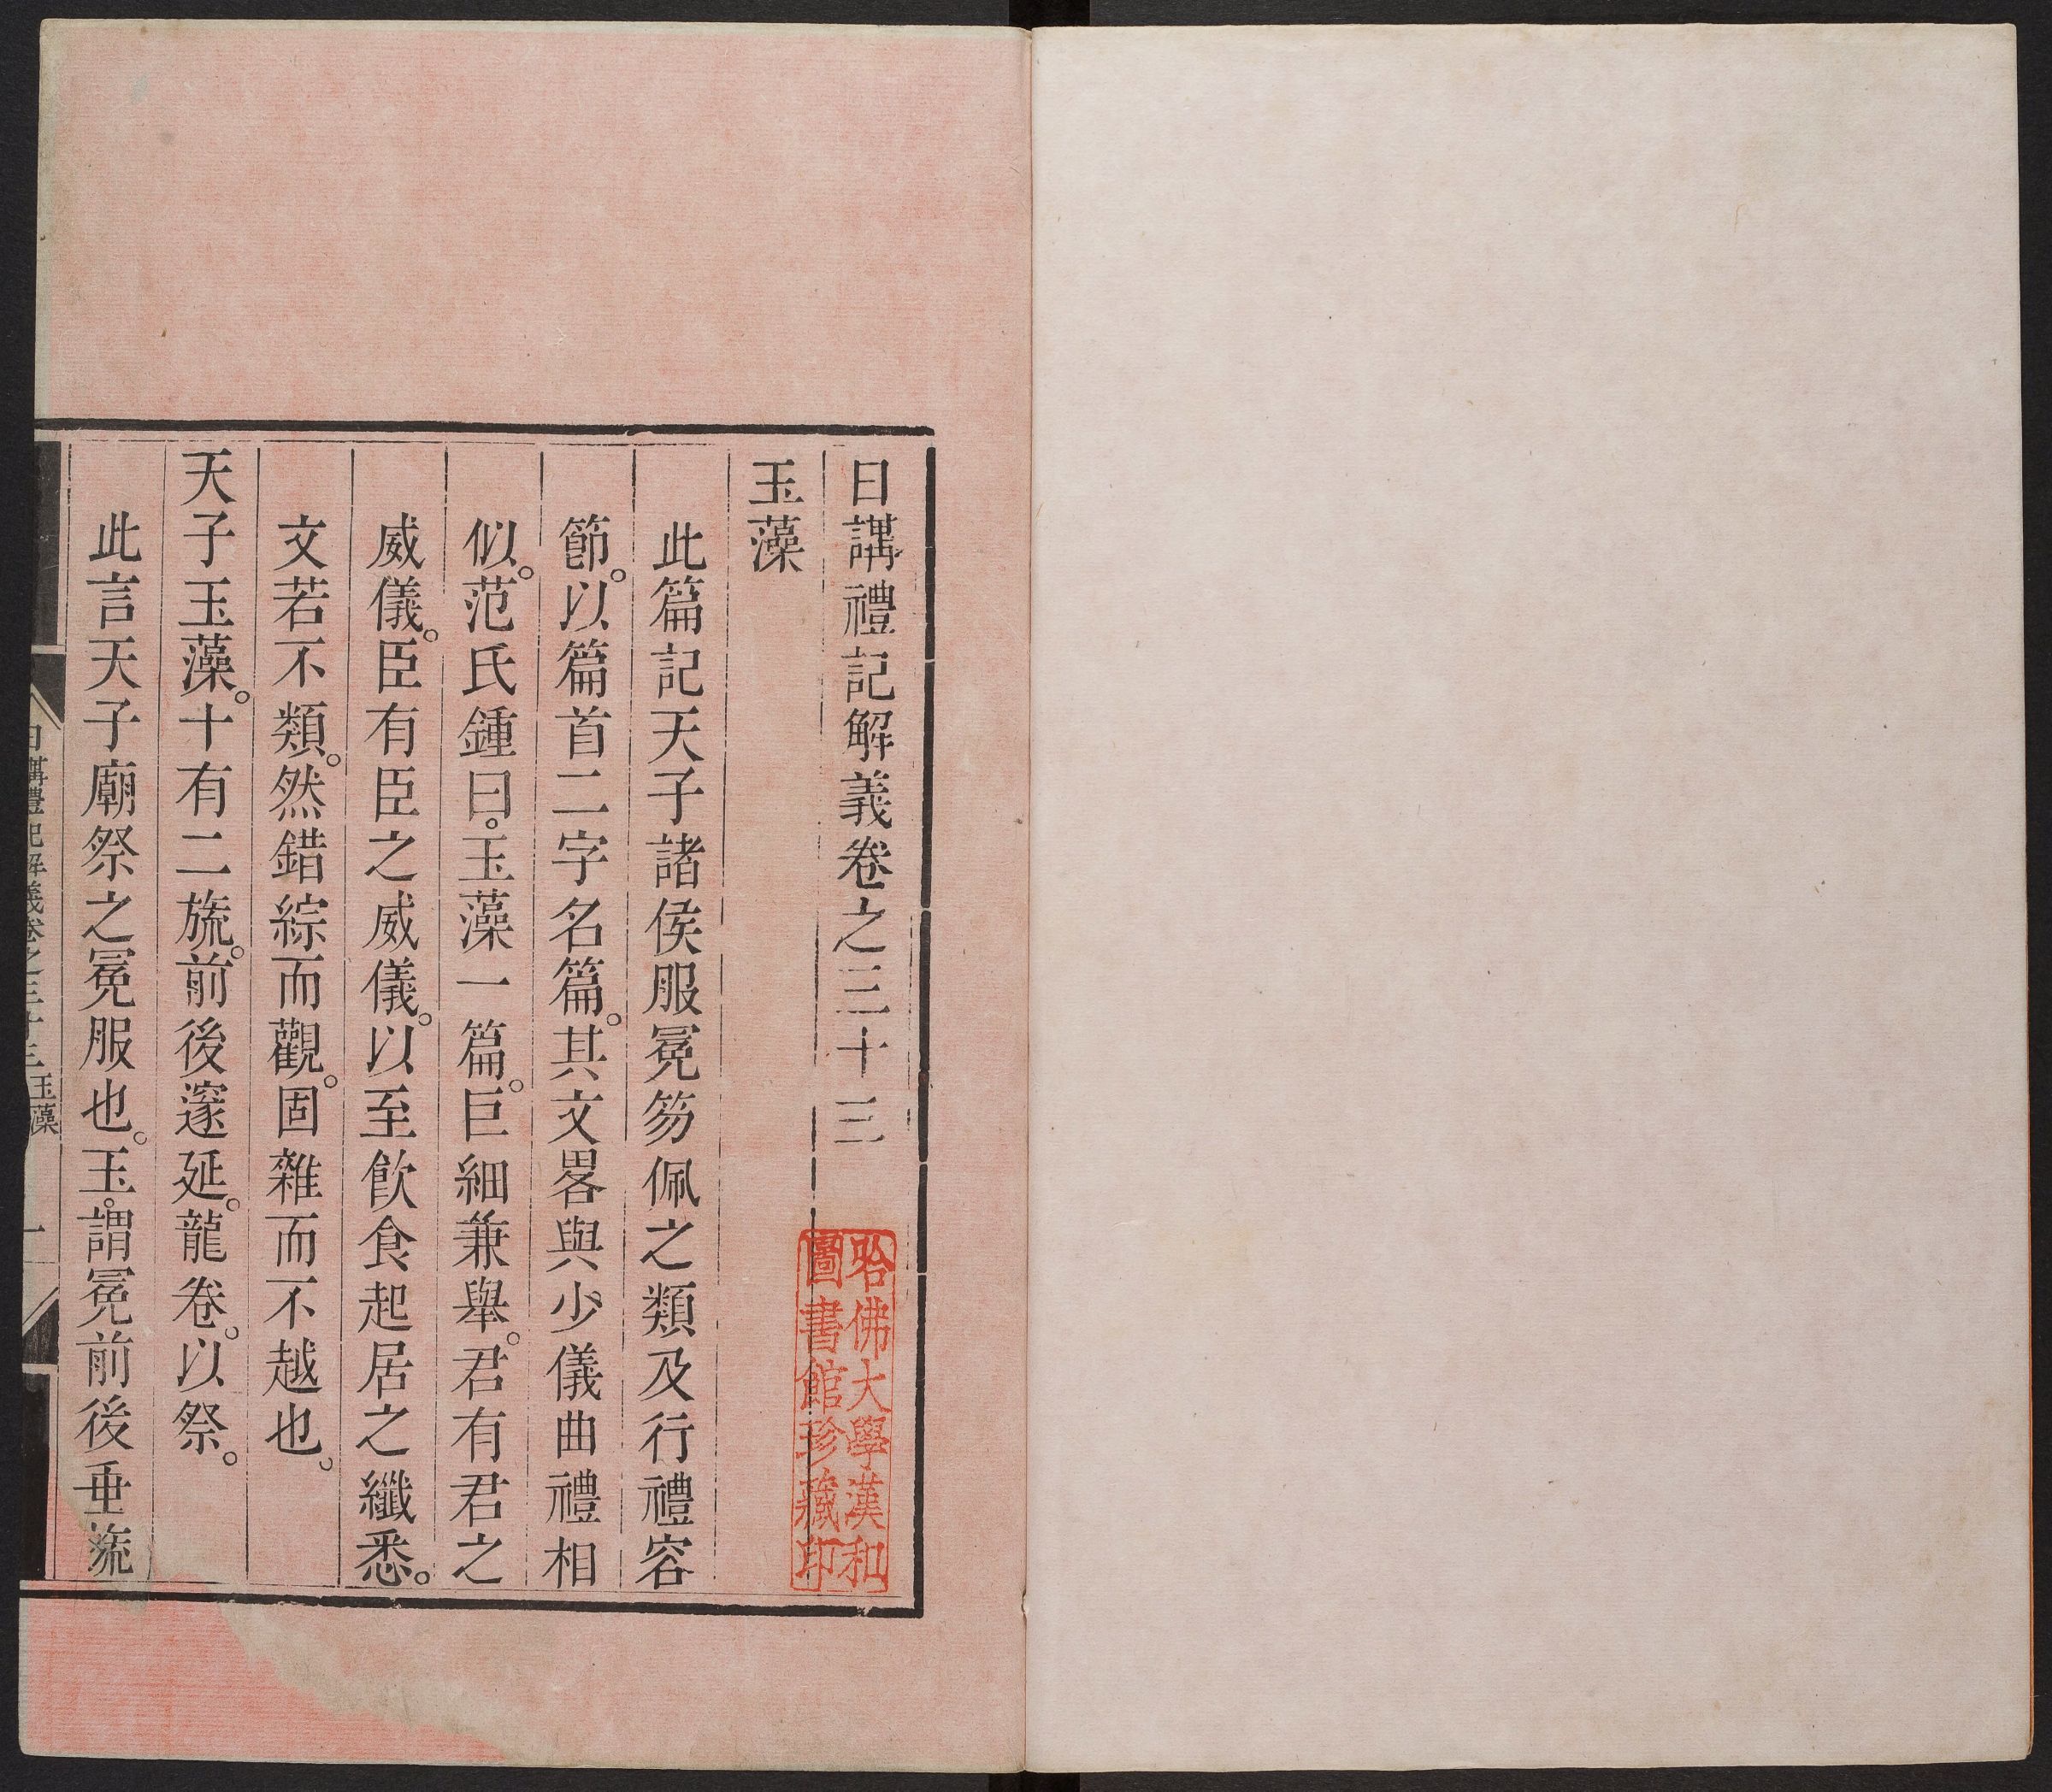 日講禮記解義卷之三十三
玉藻
此篇記天子諸侯服冕笏佩之類及行禮容
節。以篇首二字名篇。其文畧與少儀曲禮相
似。范氏鍾曰。玉藻一篇。巨細兼舉。君有君之
威儀。臣有臣之威儀。以至飲食起居之纖悉。
文若不類。然錯綜而觀。固雜而不越也。
天子玉藻。十有二旒。前後邃延。龍卷。以祭。
此言天子廟祭之冕服也。玉。謂冕前後垂旒
日講禮記解義卷之三十三 玉藻 一
哈佛大學漢和
圖書館珍藏印